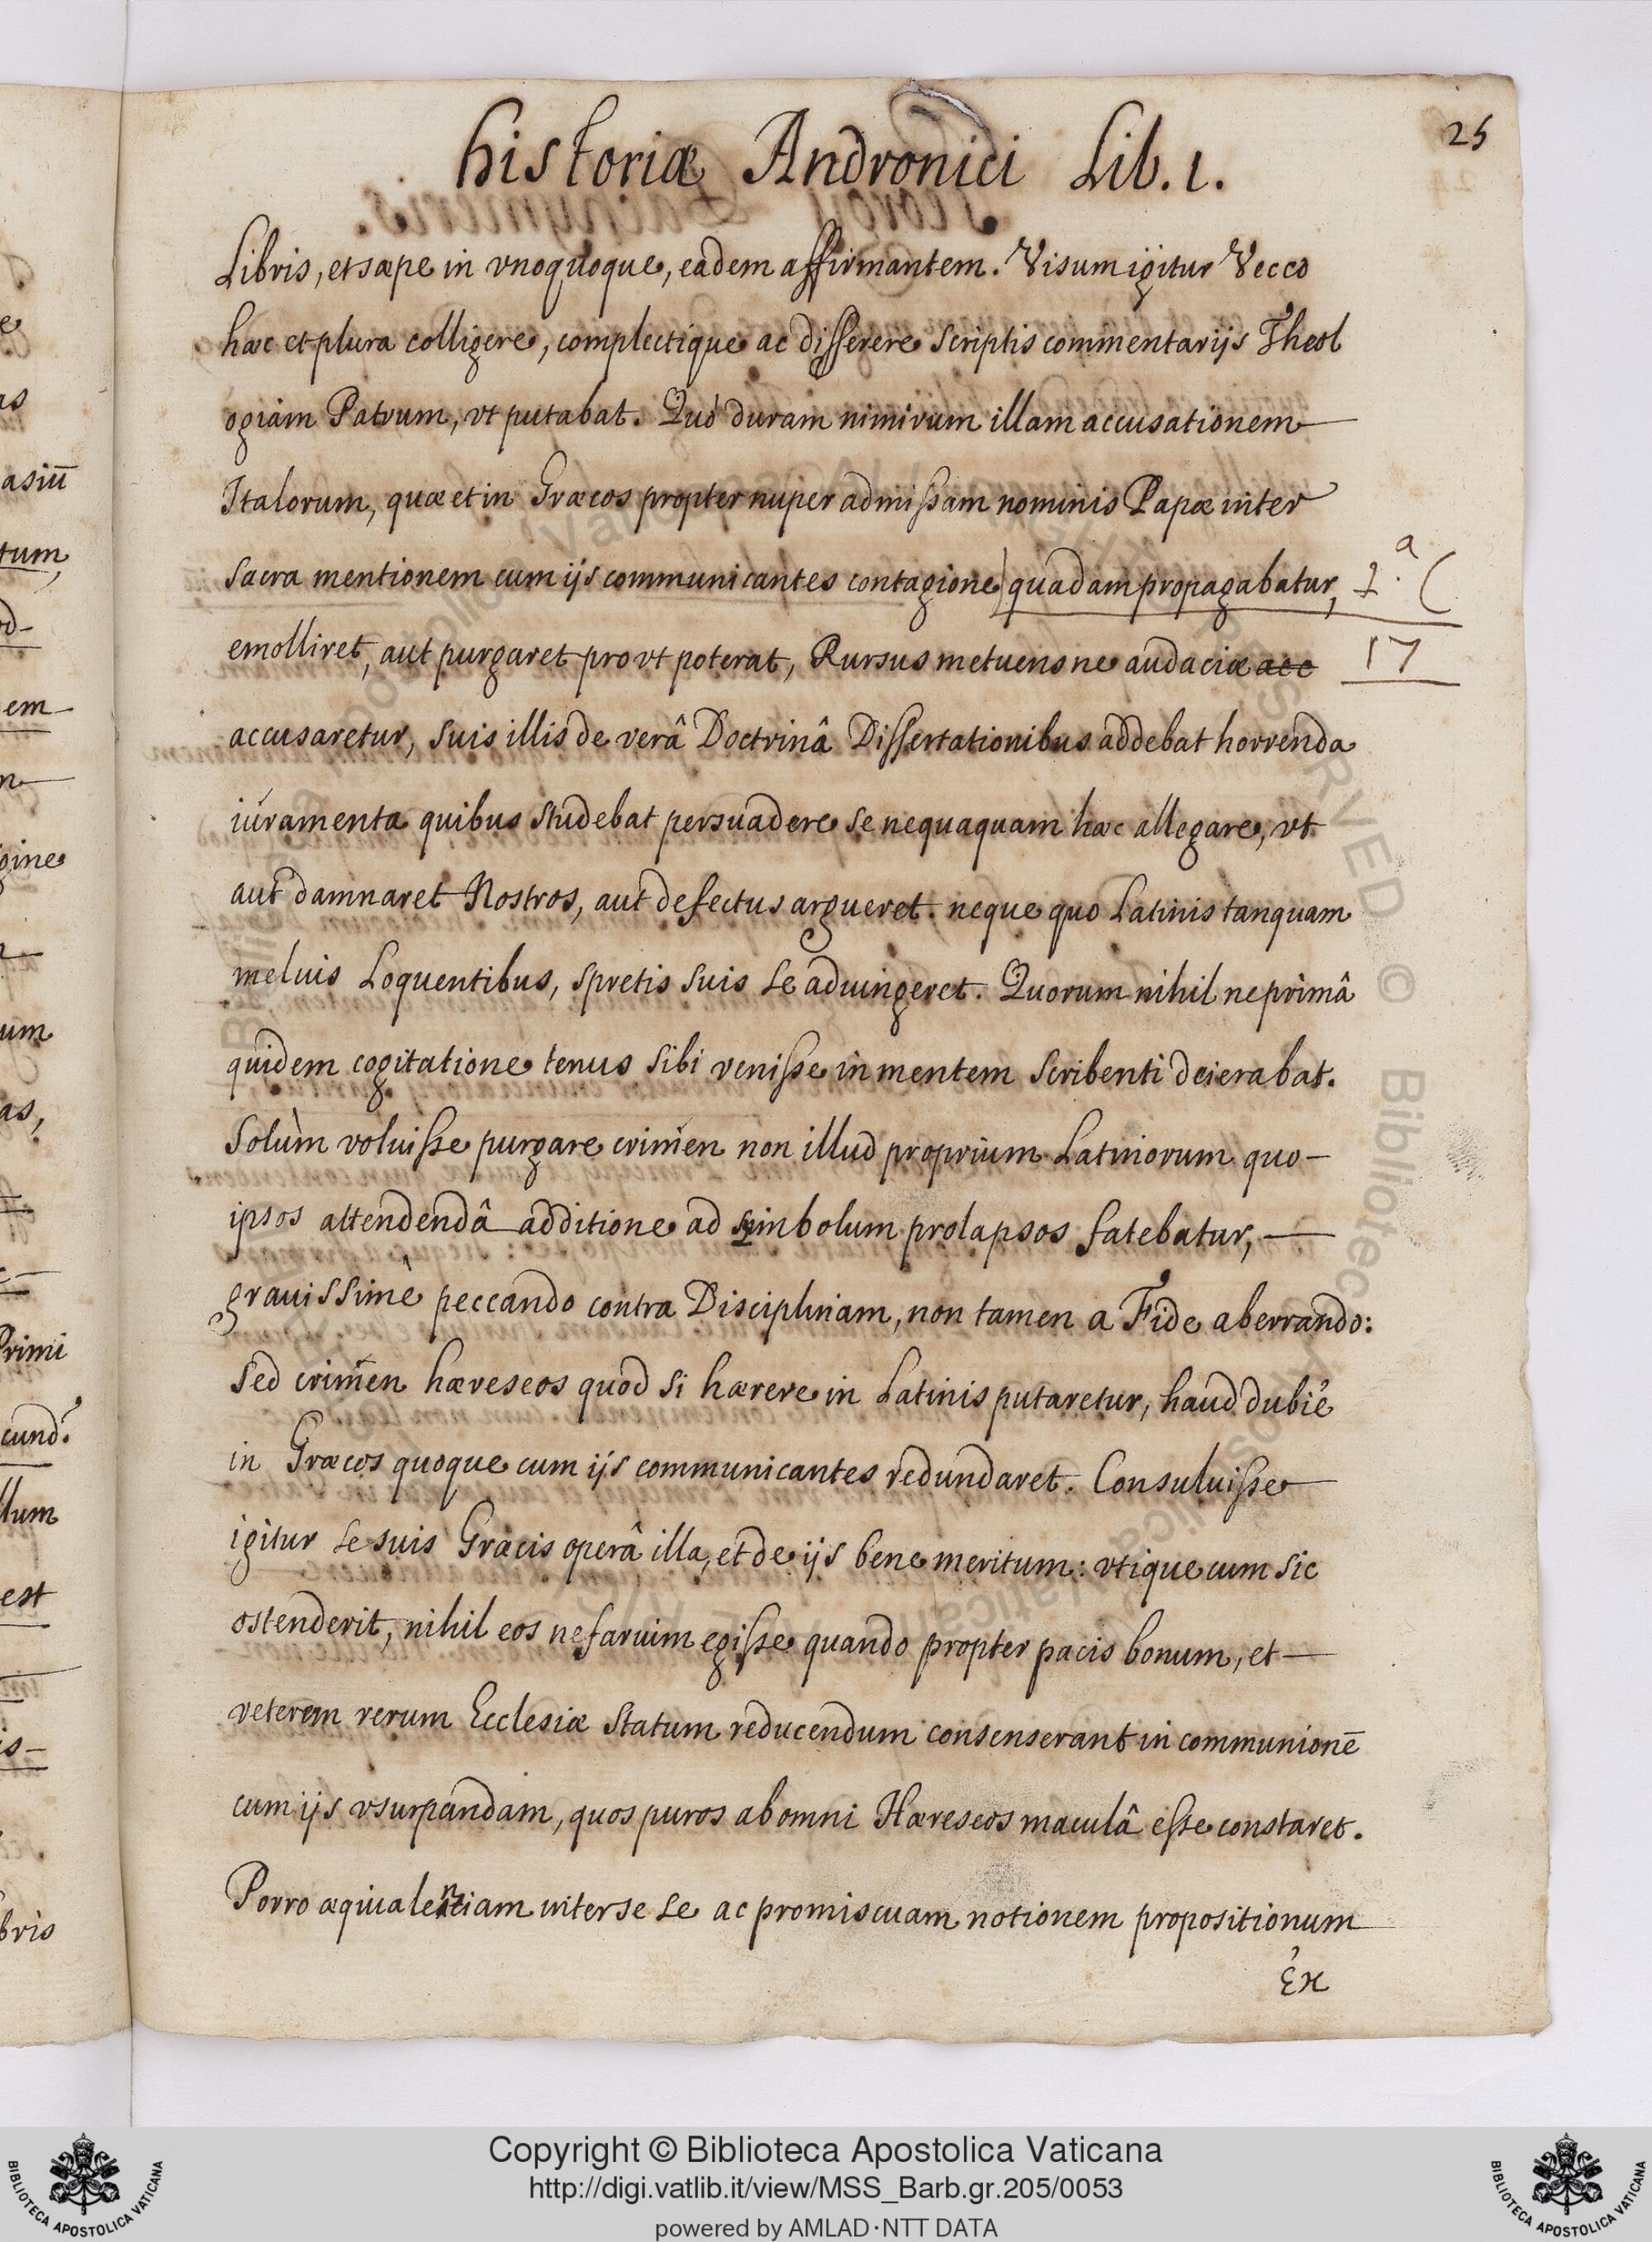 historiæ Andronici Lib. 1.
25
Libris, et sæpe in vnoquoque, eadem affirmantem. Visum igitur Vecco
hæc et plura colligere, complectique ac disserere scriptis commentarijs Theol
ogiam Patrum, vt putabat. Quò duram nimirum illam accusationem
Italorum, quæ et in Græcos propter nuper admissam nominis Papæ inter
sacra mentionem cum ijs communicantes contagione) quadam propagabatur,
2.a (
17
emolliret, aut purgaret prout poterat, Rursus metuens ne audaciæ acc
accusaretur, suis illis de verâ Doctrinâ Dissertationibus addebat horrenda
iuramenta quibus studebat persuadere se nequaquam hæc allegare, vt
aut damnaret Nostros, aut defectus argueret. neque quo Latinis tanquam
meluis Loquentibus, spretis suis se adiungeret. Quorum nihil ne primâ
quidem cogitatione tenus sibi venisse in mentem scribenti deierabat.
Solùm voluisse purgare crimen non illud proprium Latinorum quo
ipsos attendendâ additione ad symbolum prolapsos fatebatur,
grauissimè peccando contra Disciplinam, non tamen a Fide aberrando:
Sed crimen hæreseos quod si hærere in Latinis putaretur, haud dubiè
in Græcos quoque cum ijs communicantes redundaret. Consuluisse
igitur se suis Græcis operâ illa, et de ijs bene meritum: vtique cum sic
ostenderit, nihil eos nefarium egisse quando propter pacis bonum, et
veterem rerum Ecclesiæ statum reducendum consenserant in communionē
cum ijs vsurpandam, quos puros ab omni Hæreseos maculâ esse constaret.
Porro æquiualentiam inter se se ac promiscuam notionem propositionum
Ex
asiū
tum,
em
gine
um
as,
Primi
cund.
llum
est
is
bris
Copyright © Biblioteca Apostolica Vaticana
http://digi.vatlib.it/view/MSS_Barb.gr.205/0053
powered by AMLAD·NTT DATA
BIBLIOTECA APOSTOLICA VATICANA
BIBLIOTECA APOSTOLICA VATICANA